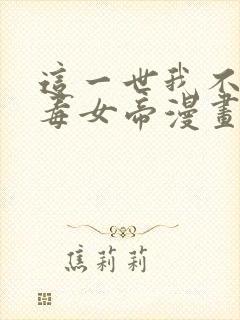 這一世我不
毒女帝漫畫
焦莉莉